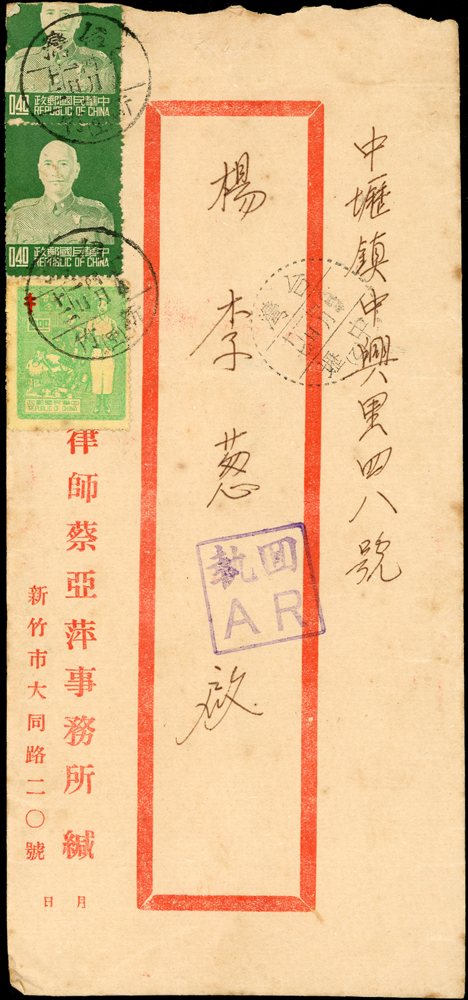 中壢鎮中興里四八號
楊李葱啟
回執
AR
律師蔡亞萍事務所緘
新竹市大同路二〇號
月
日
0.40
政郵國民華中
REPUBLIC OF CHINA
0.40
政郵國民華中
REPUBLIC OF CHINA
REPUBLIC OF CHINA
台灣
中壢